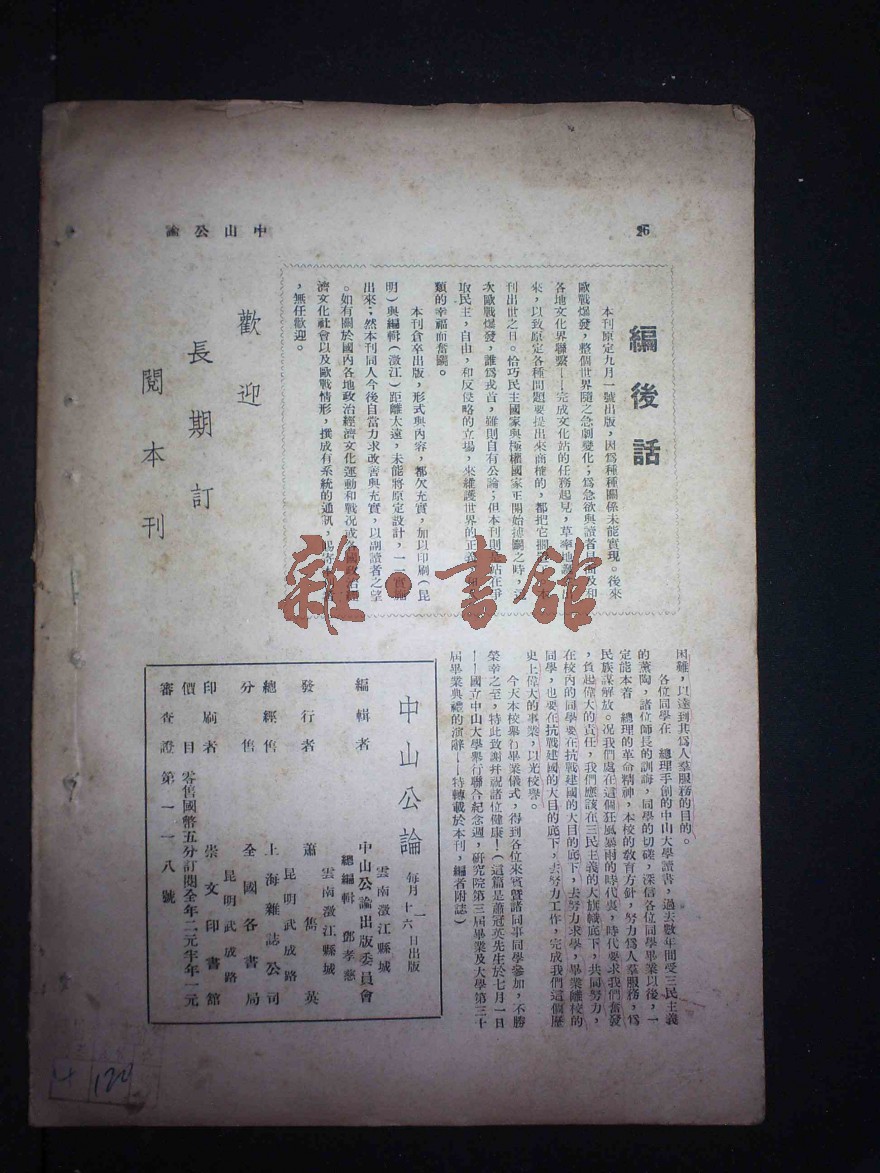 26
中山公論
編後話
本刊原定九月一號出版，因爲種種關係未能實現。後來
歐戰爆發，整個世界隨之急劇變化；爲急欲與讀者見面及和
各地文化界聯繫——完成文化站的任務起見，草率地
來，以致原定各種問題要提出來商榷的，都把它擱
刊出世之日。恰巧民主國家與極權國家正開始搏鬭之時，
次歐戰爆發，誰爲戎首，雖則自有公論；但本刊則是站在爭
取民主，自由，和反侵略的立場，來維護世界的正義
類的幸福而奮鬭。
本刊倉卒出版，形式與內容，都欠充實，加以印刷（昆
明）與編輯（澂江）距離太遠，未能將原定設計，一一實施
出來；然本刊同人今後自當力求改善與充實，以副讀者之望
。如有關於國內各地政治經濟文化運動和戰况或各國政治經
濟文化社會以及歐戰情形，撰成有系統的通訊，賜寄
，無任歡迎。
歡迎
長期訂
閱本刊
困難，以達到其爲人羣服務的目的。
各位同學在　總理手創的中山大學讀書，過去數年間受三民主義
的薰陶，諸位師長的訓誨，同學的切磋，深信各位同學畢業以後，一
定能本着　總理的革命精神，本校的教育方針，努力爲人羣服務，爲
民族謀解放。况我們處在這個狂風暴雨的時代裏，時代要求我們奮發
，負起偉大的責任，我們應該在三民主義的大旗幟底下，共同努力，
在校內的同學要在抗戰建國的大目的底下，去努力求學，畢業離校的
同學，也要在抗戰建國的大目的底下，去努力工作，完成我們這個歷
史上偉大的事業，以光校譽。
今天本校舉行畢業儀式，得到各位來賓暨諸同事同學參加，不勝
榮幸之至，特此致謝并祝諸位健康！（這篇是蕭冠英先生於七月一日
——國立中山大學舉行聯合紀念週，研究院第三屆畢業及大學第三十
屆畢業典禮的演辭——特轉載於本刊，編者附誌）
中山公論　每月一十六日出版
雲南澂江縣城
編輯者　中山公論出版委員會
總編輯　鄧孝慈
雲南澂江縣城
發行者　蕭雋英
昆明武成路
總經售　上海雜誌公司
分售　全國各書局
昆明武成路
印刷者　崇文印書館
價目　零售國幣五分訂閱全年二元半年一元
審查證第一一八號
雜·書館